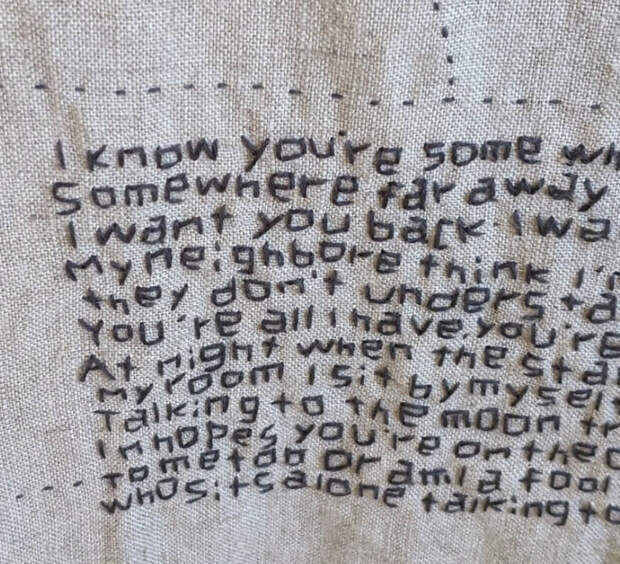 I know you're some wh
Somewhere far away
I want you back. I wa
My neighbore think I'm
they don't understa
You're all I have, you're
At night when the star
My room I sit by myself
Talking to the moon tr
In hopes you're on the o
To me too or am I a fool
who sits alone talking to